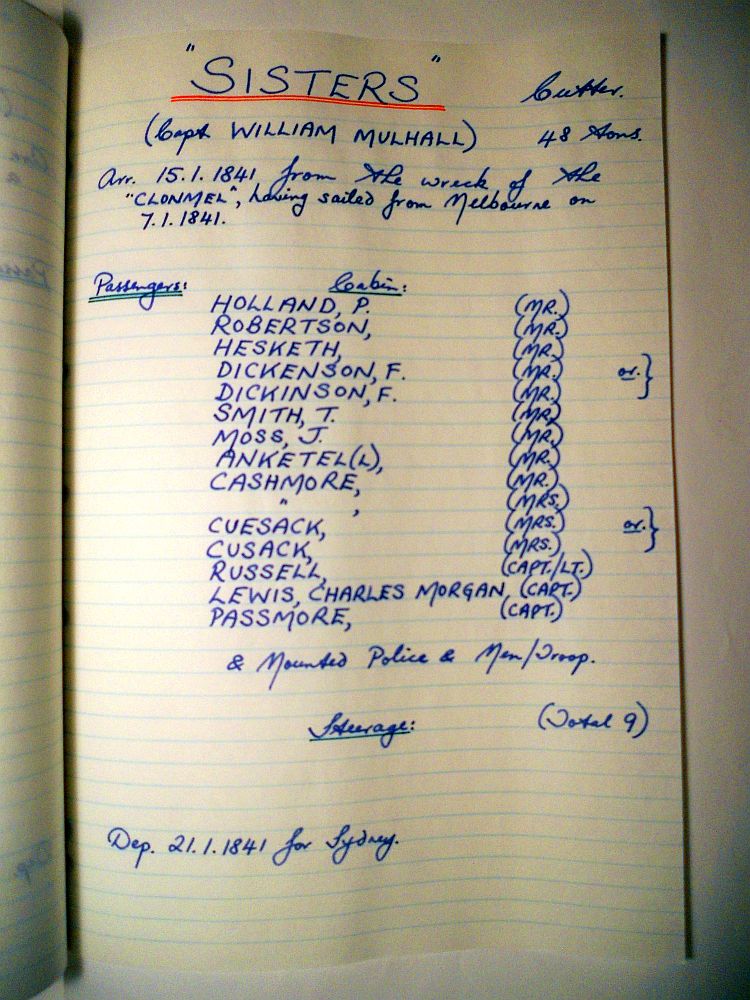 "SISTERS" Cutter.
(Capt WILLIAM MULHALL) 48 tons.
Arr. 15.1.1841 from the wreck of the
"CLONMEL", having sailed from Melbourne on
7.1.1841.
Passengers: Cabin:
HOLLAND, P. (MR.)
ROBERTSON, (MR.)
HESKETH, (MR.)
DICKENSON, F. (MR.) or. }
DICKINSON, F. (MR.)
SMITH, T. (MR.)
MOSS, J. (MR.)
ANKETEL(L), (MR.)
CASHMORE, (MR.)
" , (MRS.)
CUESACK, (MRS.) or. }
CUSACK, (MRS.)
RUSSELL, (CAPT./LT.)
LEWIS, CHARLES MORGAN, (CAPT.)
PASSMORE, (CAPT.)
& Mounted Police & Men/Troop.
Steerage: (Total 9)
Dep. 21.1.1841 for Sydney.